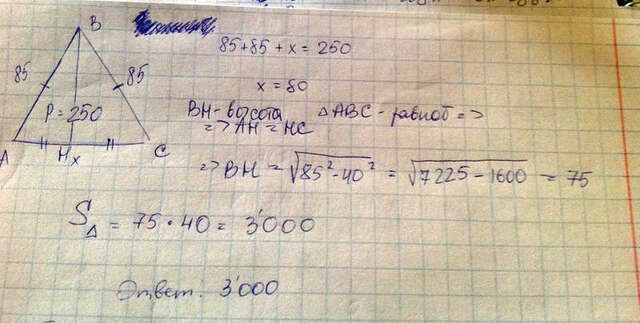 B
85+85+x=250
85 85
x=80
P=250
BH-высота △ABC - равноб =>
=> AH=HC
A H x C
=> BH = √85²-40² = √7225-1600 = 75
S△ = 75·40 = 3'000
Ответ: 3'000